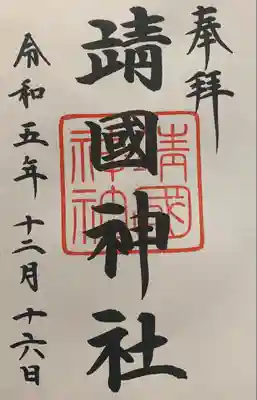 奉拝
靖國神社
靖國神社
令和五年十二月十六日